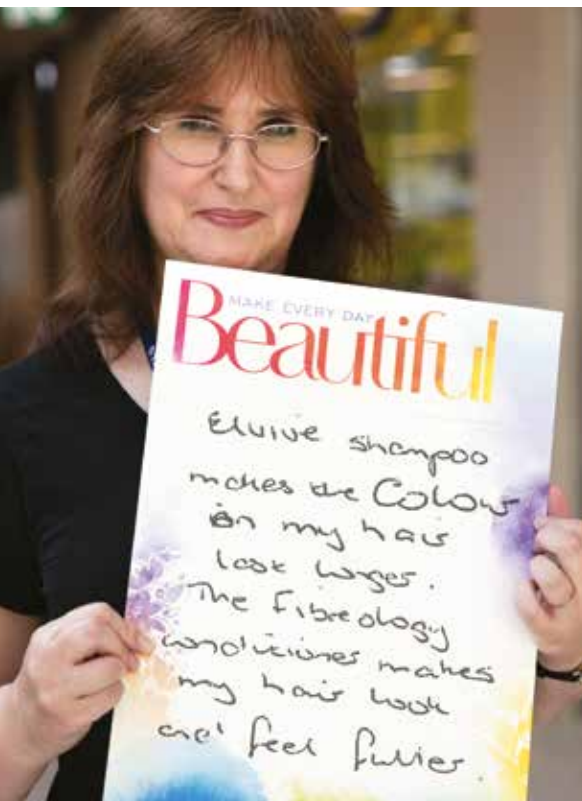 MAKE EVERY DAY
Beautiful
Elvive shampoo
makes the Colour
in my hair
look longer.
The Fibreology
conditioner makes
my hair look
and feel fuller.